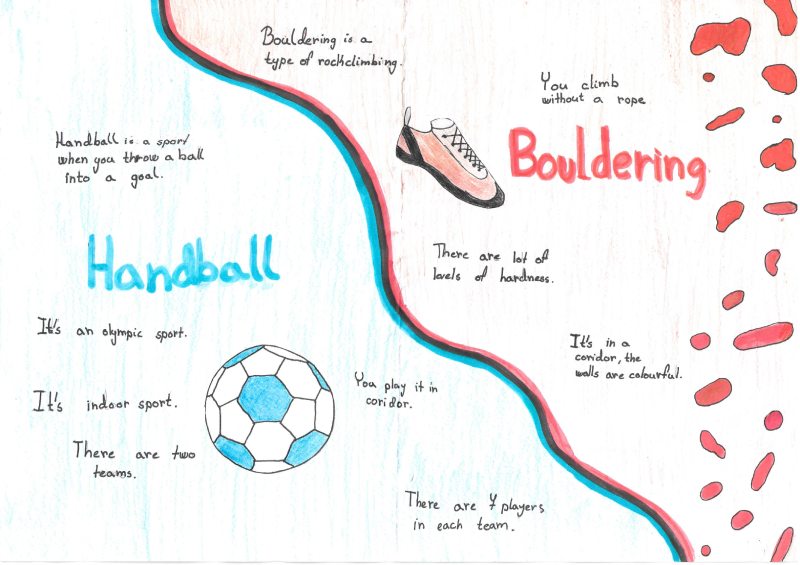 Bouldering is a
type of rockclimbing.
You climb
without a rope
Bouldering
There are lot of
levels of hardness.
It's in a
coridor, the
walls are colourful.
Handball is a sport
when you throw a ball
into a goal.
Handball
It's an olympic sport.
It's indoor sport.
There are two
teams.
You play it in
coridor.
There are 7 players
in each team.